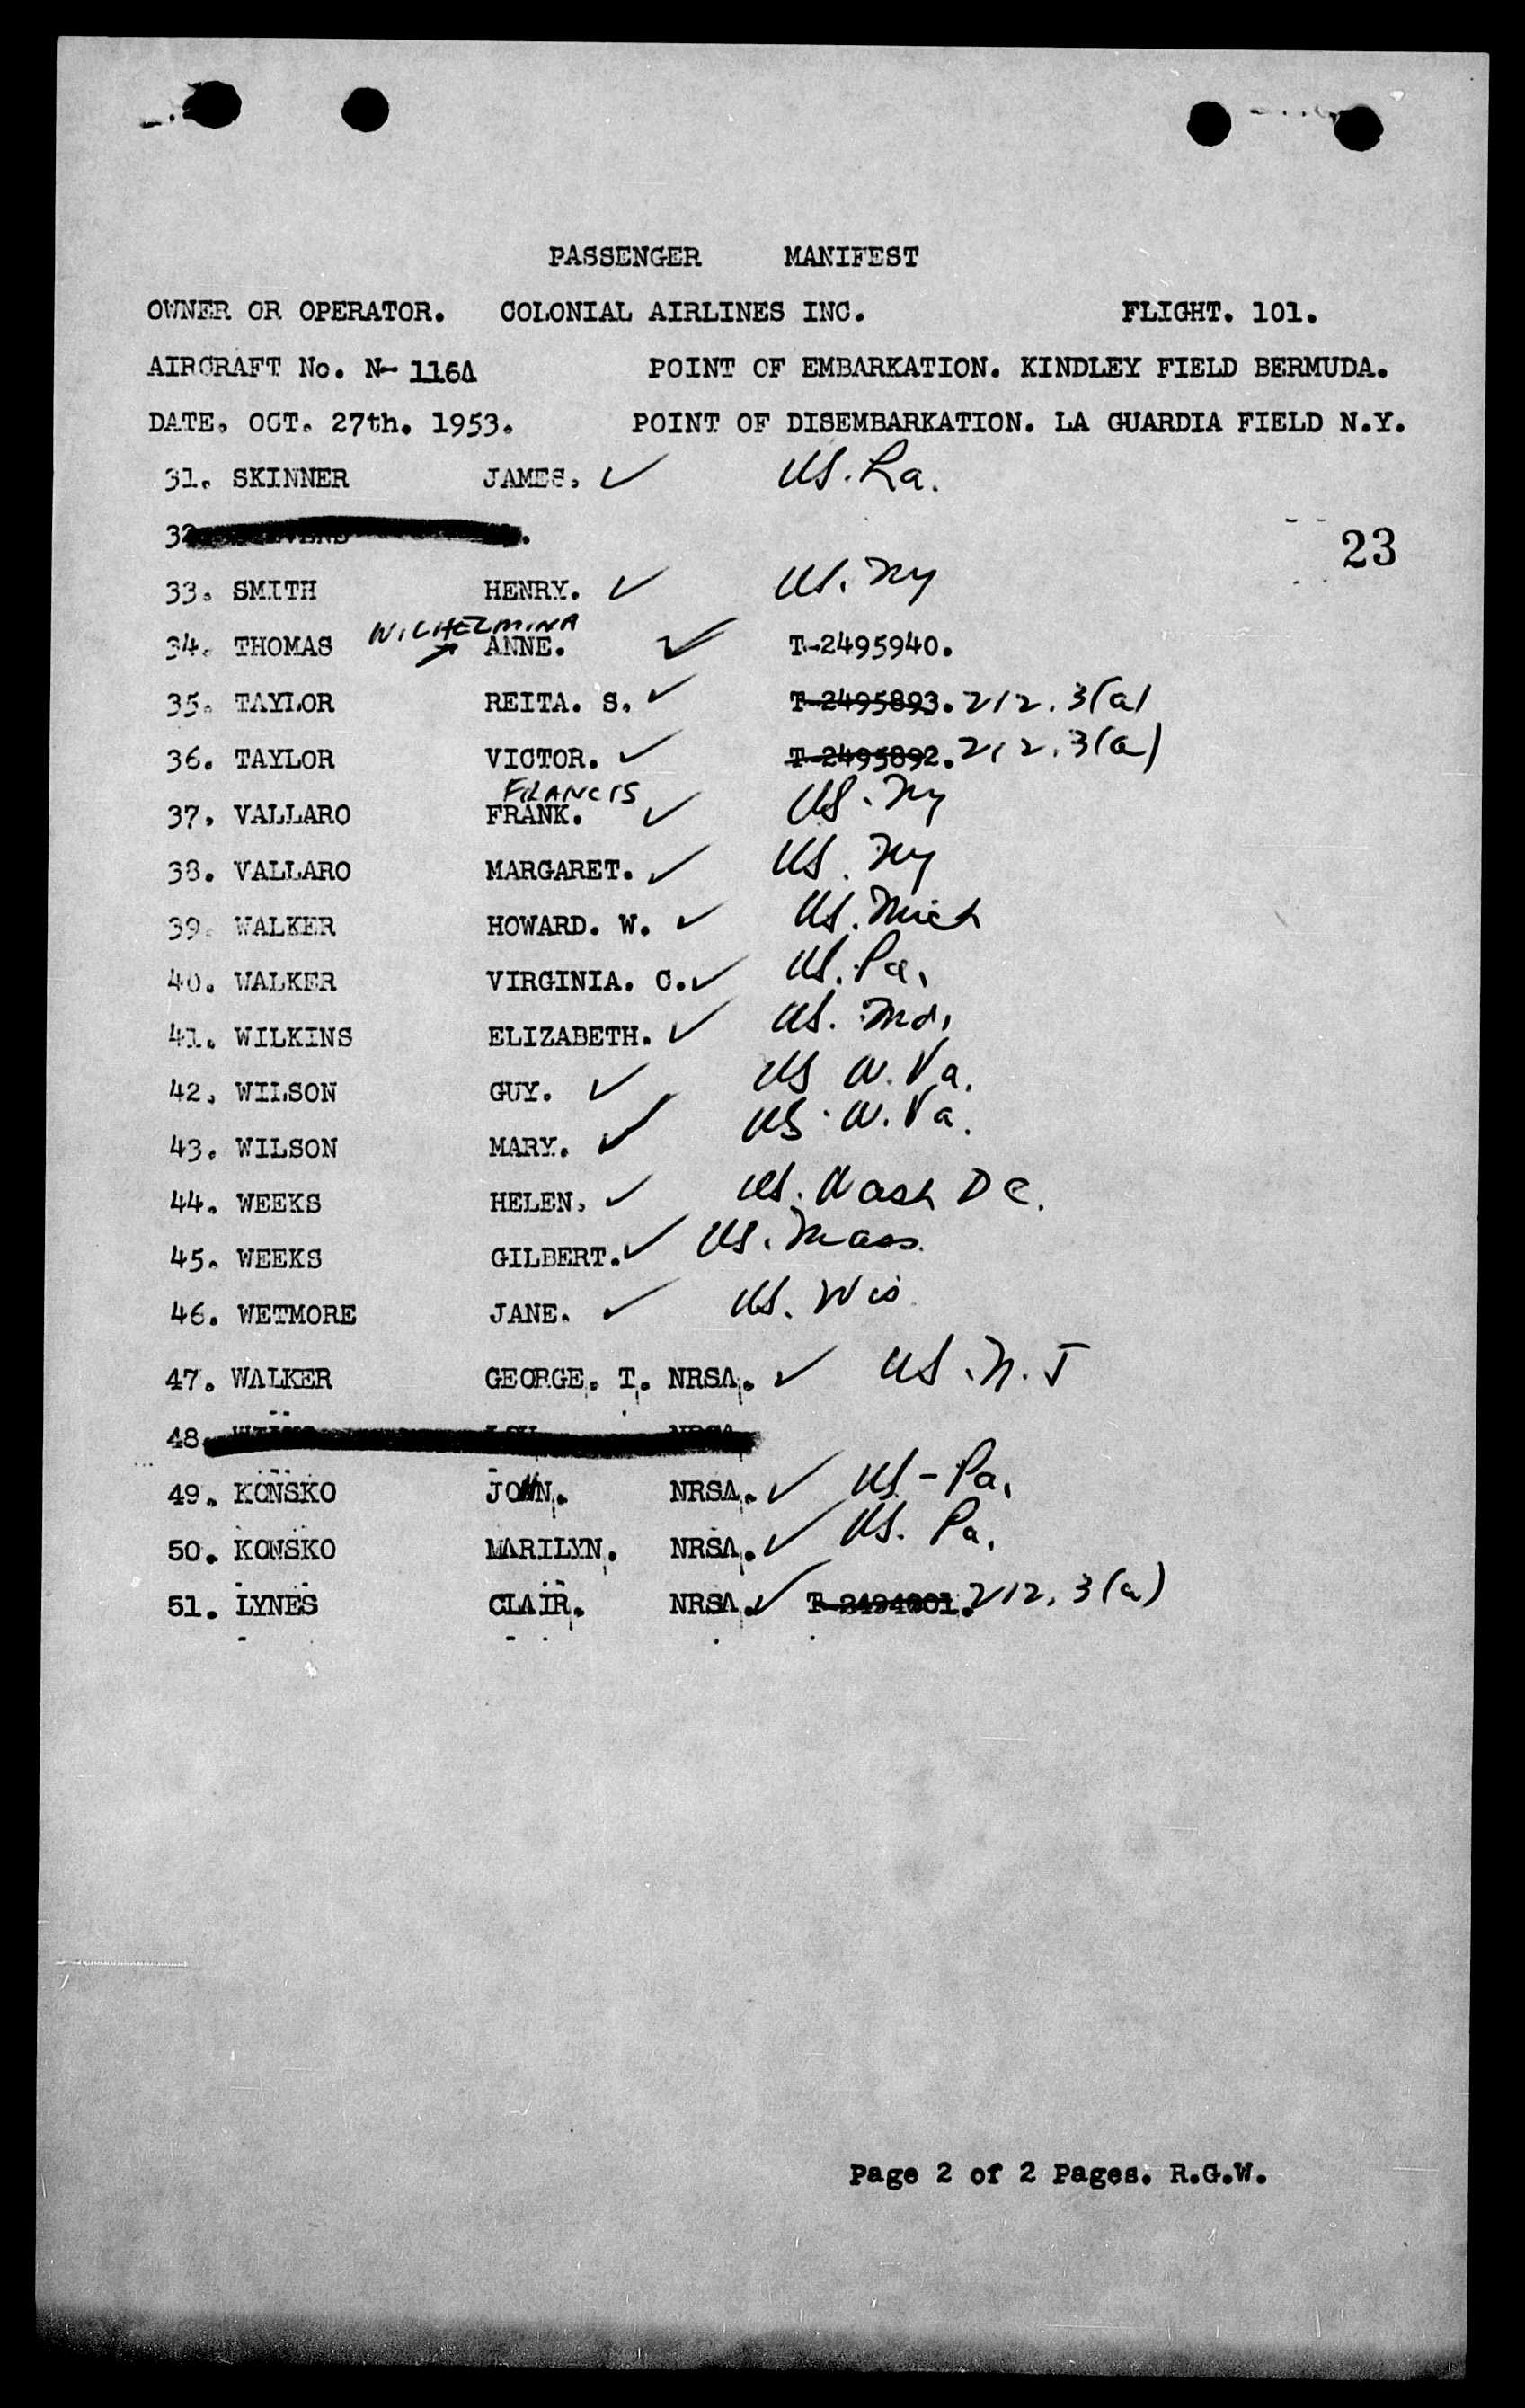 PASSENGER MANIFEST
OWNER OR OPERATOR. COLONIAL AIRLINES INC. FLIGHT. 101.
AIRCRAFT No. N- 116A POINT OF EMBARKATION. KINDLEY FIELD BERMUDA.
DATE. OCT. 27th. 1953. POINT OF DISEMBARKATION. LA GUARDIA FIELD N.Y.
31. SKINNER JAMES. ✓ US. La.
32
23
33. SMITH HENRY. ✓ US. NY
WILHELMINA
34. THOMAS ANNE. ✓ T-2495940.
35. TAYLOR REITA. S. ✓ T-2495893. 212.3(a)
36. TAYLOR VICTOR. ✓ T-2495892. 212.3(a)
FRANCIS
37. VALLARO FRANK. ✓ US. NY
38. VALLARO MARGARET. ✓ US. NY
39. WALKER HOWARD. W. ✓ US. Mich
40. WALKER VIRGINIA. C. ✓ US. Pa.
41. WILKINS ELIZABETH. ✓ US. Md.
42. WILSON GUY. ✓ US W. Va.
43. WILSON MARY. ✓ US. W. Va.
44. WEEKS HELEN. ✓ US. Wash DC.
45. WEEKS GILBERT. ✓ US. Mass.
46. WETMORE JANE. ✓ US. Wis
47. WALKER GEORGE. T. NRSA. ✓ US. N. J
48.
49. KONSKO JOHN. NRSA. ✓ US - Pa.
50. KONSKO MARILYN. NRSA. ✓ US. Pa.
51. LYNES CLAIR. NRSA. ✓ 212.3(a)
Page 2 of 2 Pages. R.G.W.